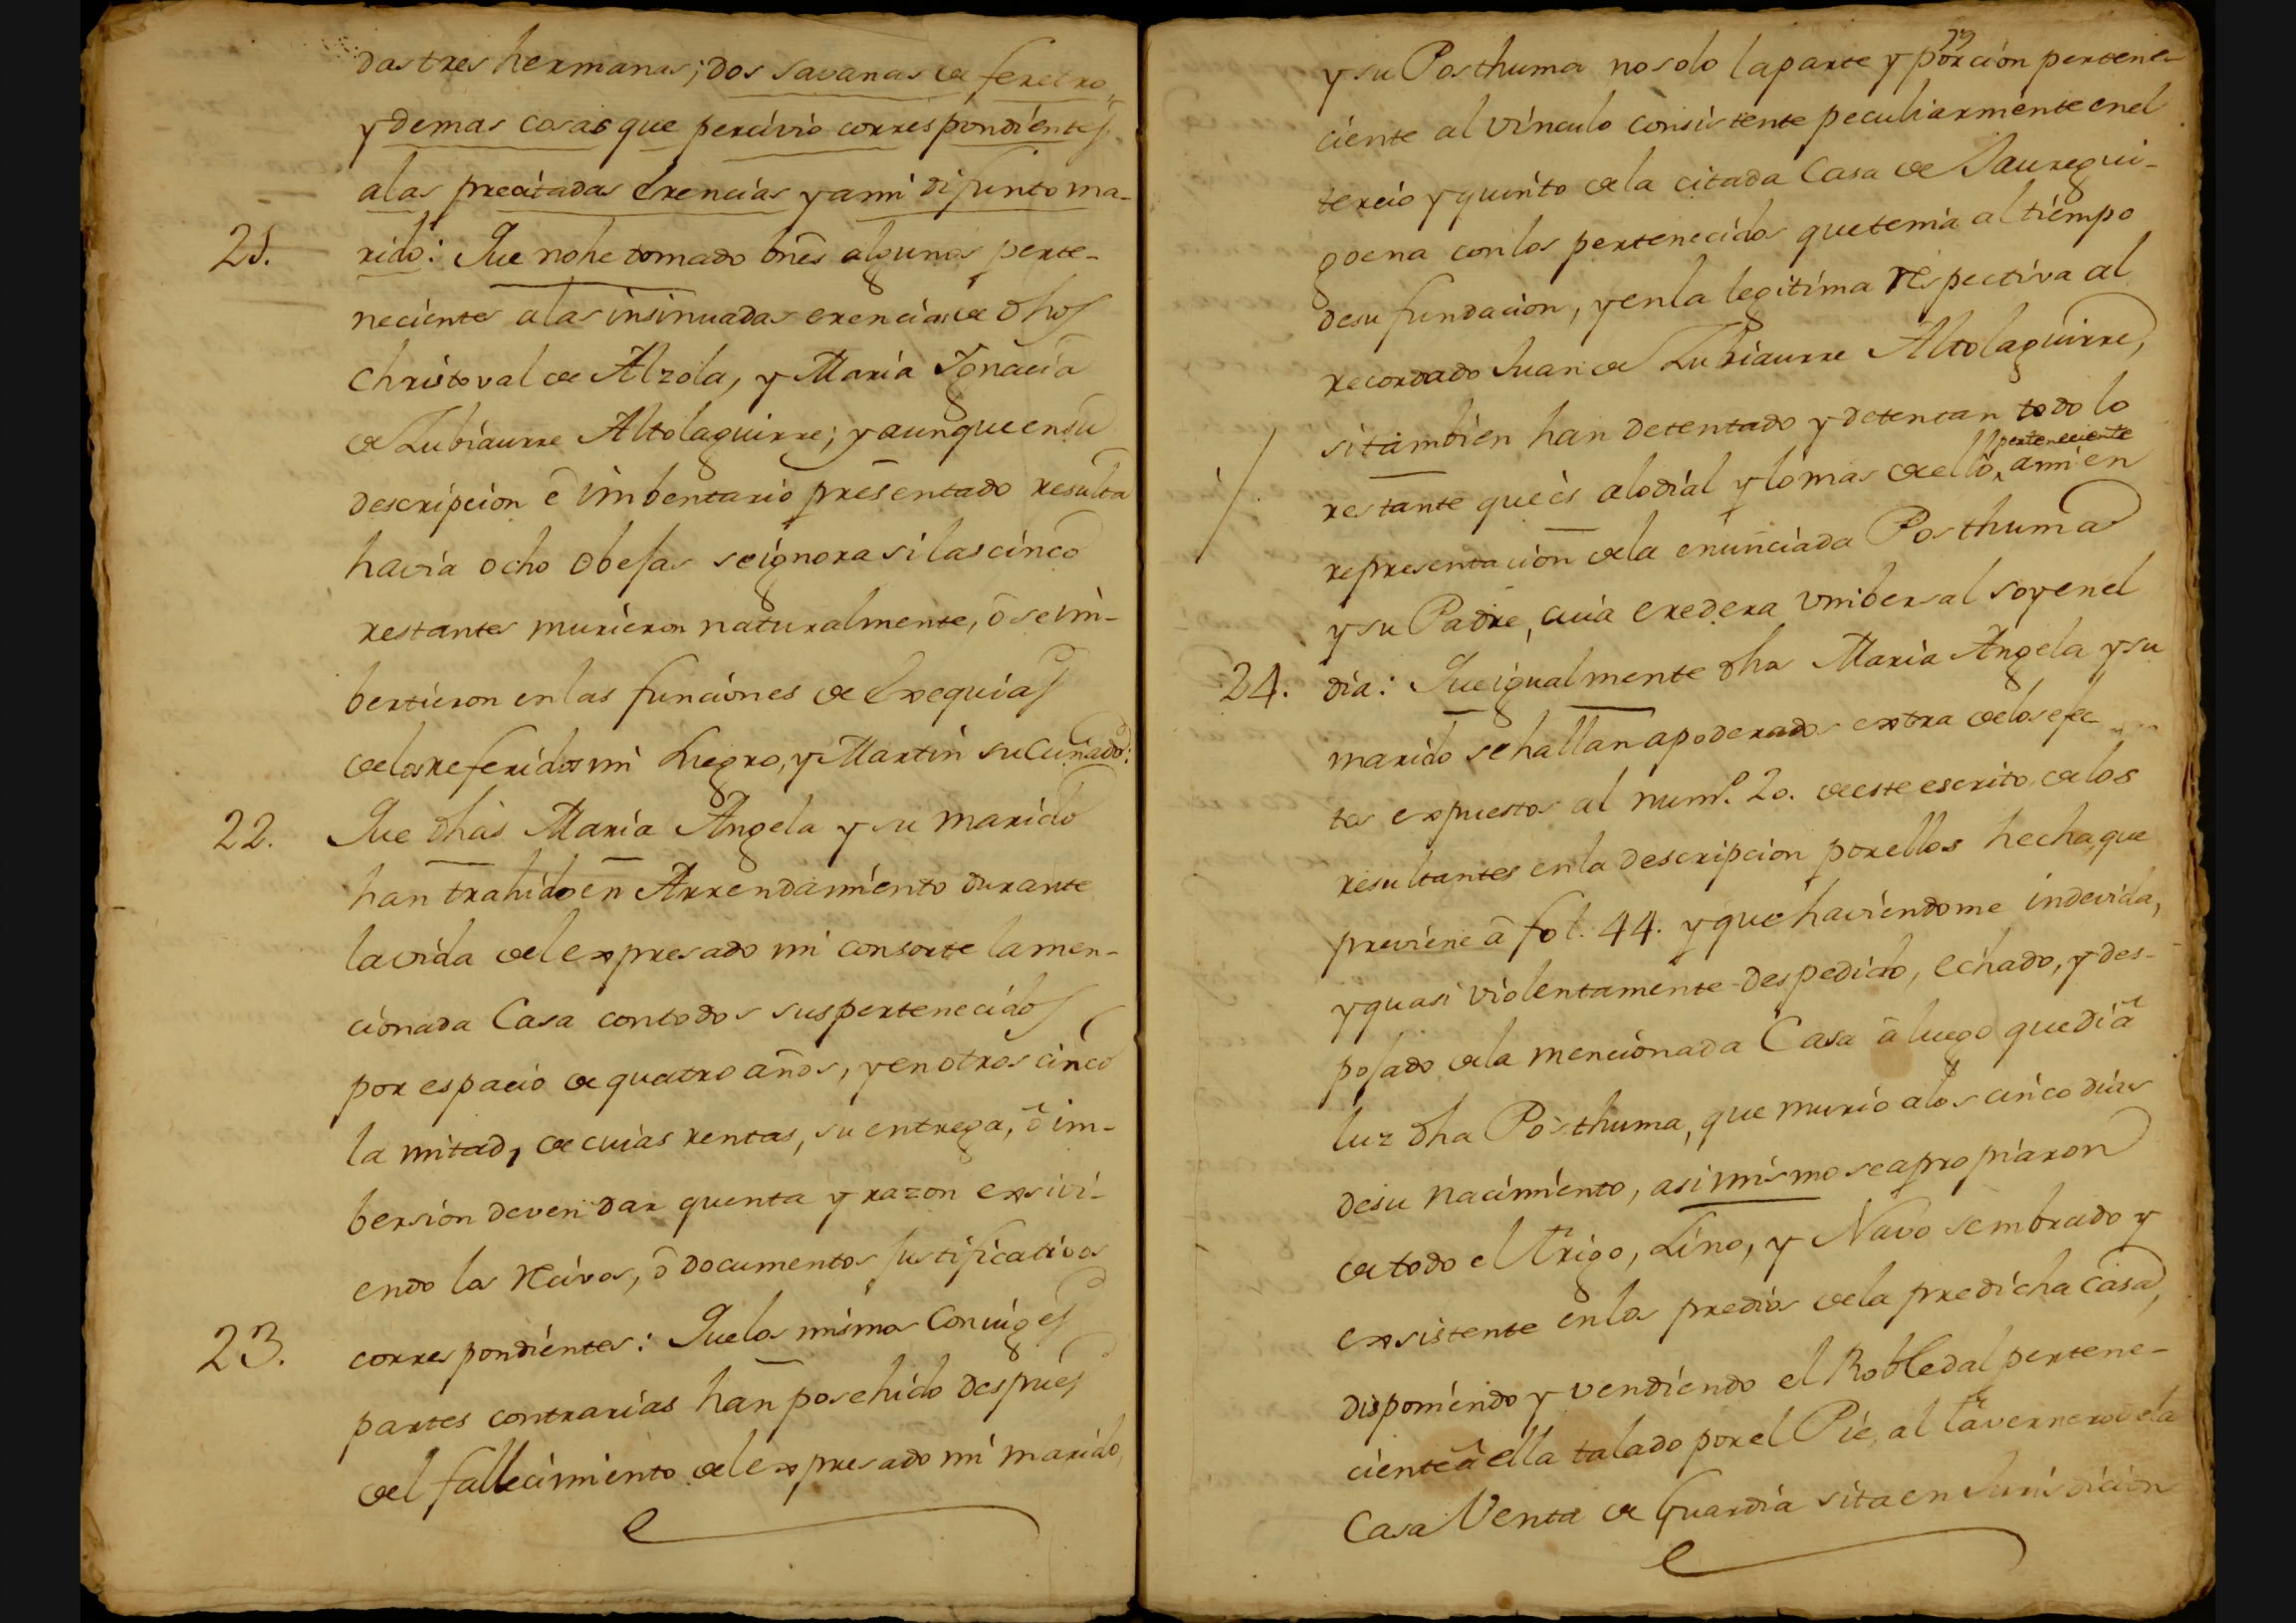 das tres hermanas; dos savanas de feretro,
y demas cosas que percivio correspondientes
a las precitadas Erencias y a mi difunto ma-
21. rido: Que no he tomado bnēs algunos perte-
necientes a las insinuadas erencias de dhos
Christoval de Alzola, y Maria Ygnacia
de Lubiaurre Altolaguirre; y aunque en su
descripcion é imbentario presentado resulta
havia ocho obejas se ignora si las cinco
restantes murieron naturalmente, ó se im-
bertieron en las funciones de Exequias
de los referidos mi suegro, y Martin su cuñado:
22. Que dhas Maria Angela y su marido
han trahido en Arrendamiento durante
la vida del expresado mi consorte la men-
cionada Casa con todos sus pertenecidos
por espacio de quatro años, y en otros cinco
la mitad, de cuias rentas, su entrega, ó im-
bersion deven dar quenta y razon exsivi-
endo los recivos, ó documentos justificativos
23. correspondientes: Que los mismos Coniuges
partes contrarias han posehido despues
del fallecimiento del expresado mi marido,
y su Posthuma no solo la parte y porcion pertene-
ciente al vinculo consistente peculiarmente en el
tercio y quinto de la citada Casa de Jauregui-
goena con los pertenecidos que tenia al tiempo
de su fundacion, y en la legitima respectiva al
recordado Juan de Lubiaurre Altolaguirre,
si tambien han detentado y detentan todo lo
restante que es alodial y lo mas de ello, perteneciente a mi en
representacion de la enunciada Posthuma
y su Padre, cuia eredera vnibersal soy en el
24. dia: Que igualmente dha Maria Angela y su
marido se hallan apoderados extra de los efec-
tos expuestos al num.º 20. de este escrito de los
resultantes en la descripcion por ellos hecha, que
previene á fol. 44. y que haviendome indevida,
y quasi violentamente despedido, echado, y des-
pojado de la mencionada Casa á luego que dí á
luz dha Posthuma, que murió a los cinco dias
de su nacimiento, asi mismo se apropiaron
de todo el Trigo, Lino, y Navo sembrado y
exsistente en los predios de la predicha casa,
disponiendo y vendiendo el Robledal pertene-
ciente á ella talado por el Pie, al tavernero de la
Casa Venta de Guardia sita en Jurisdicion